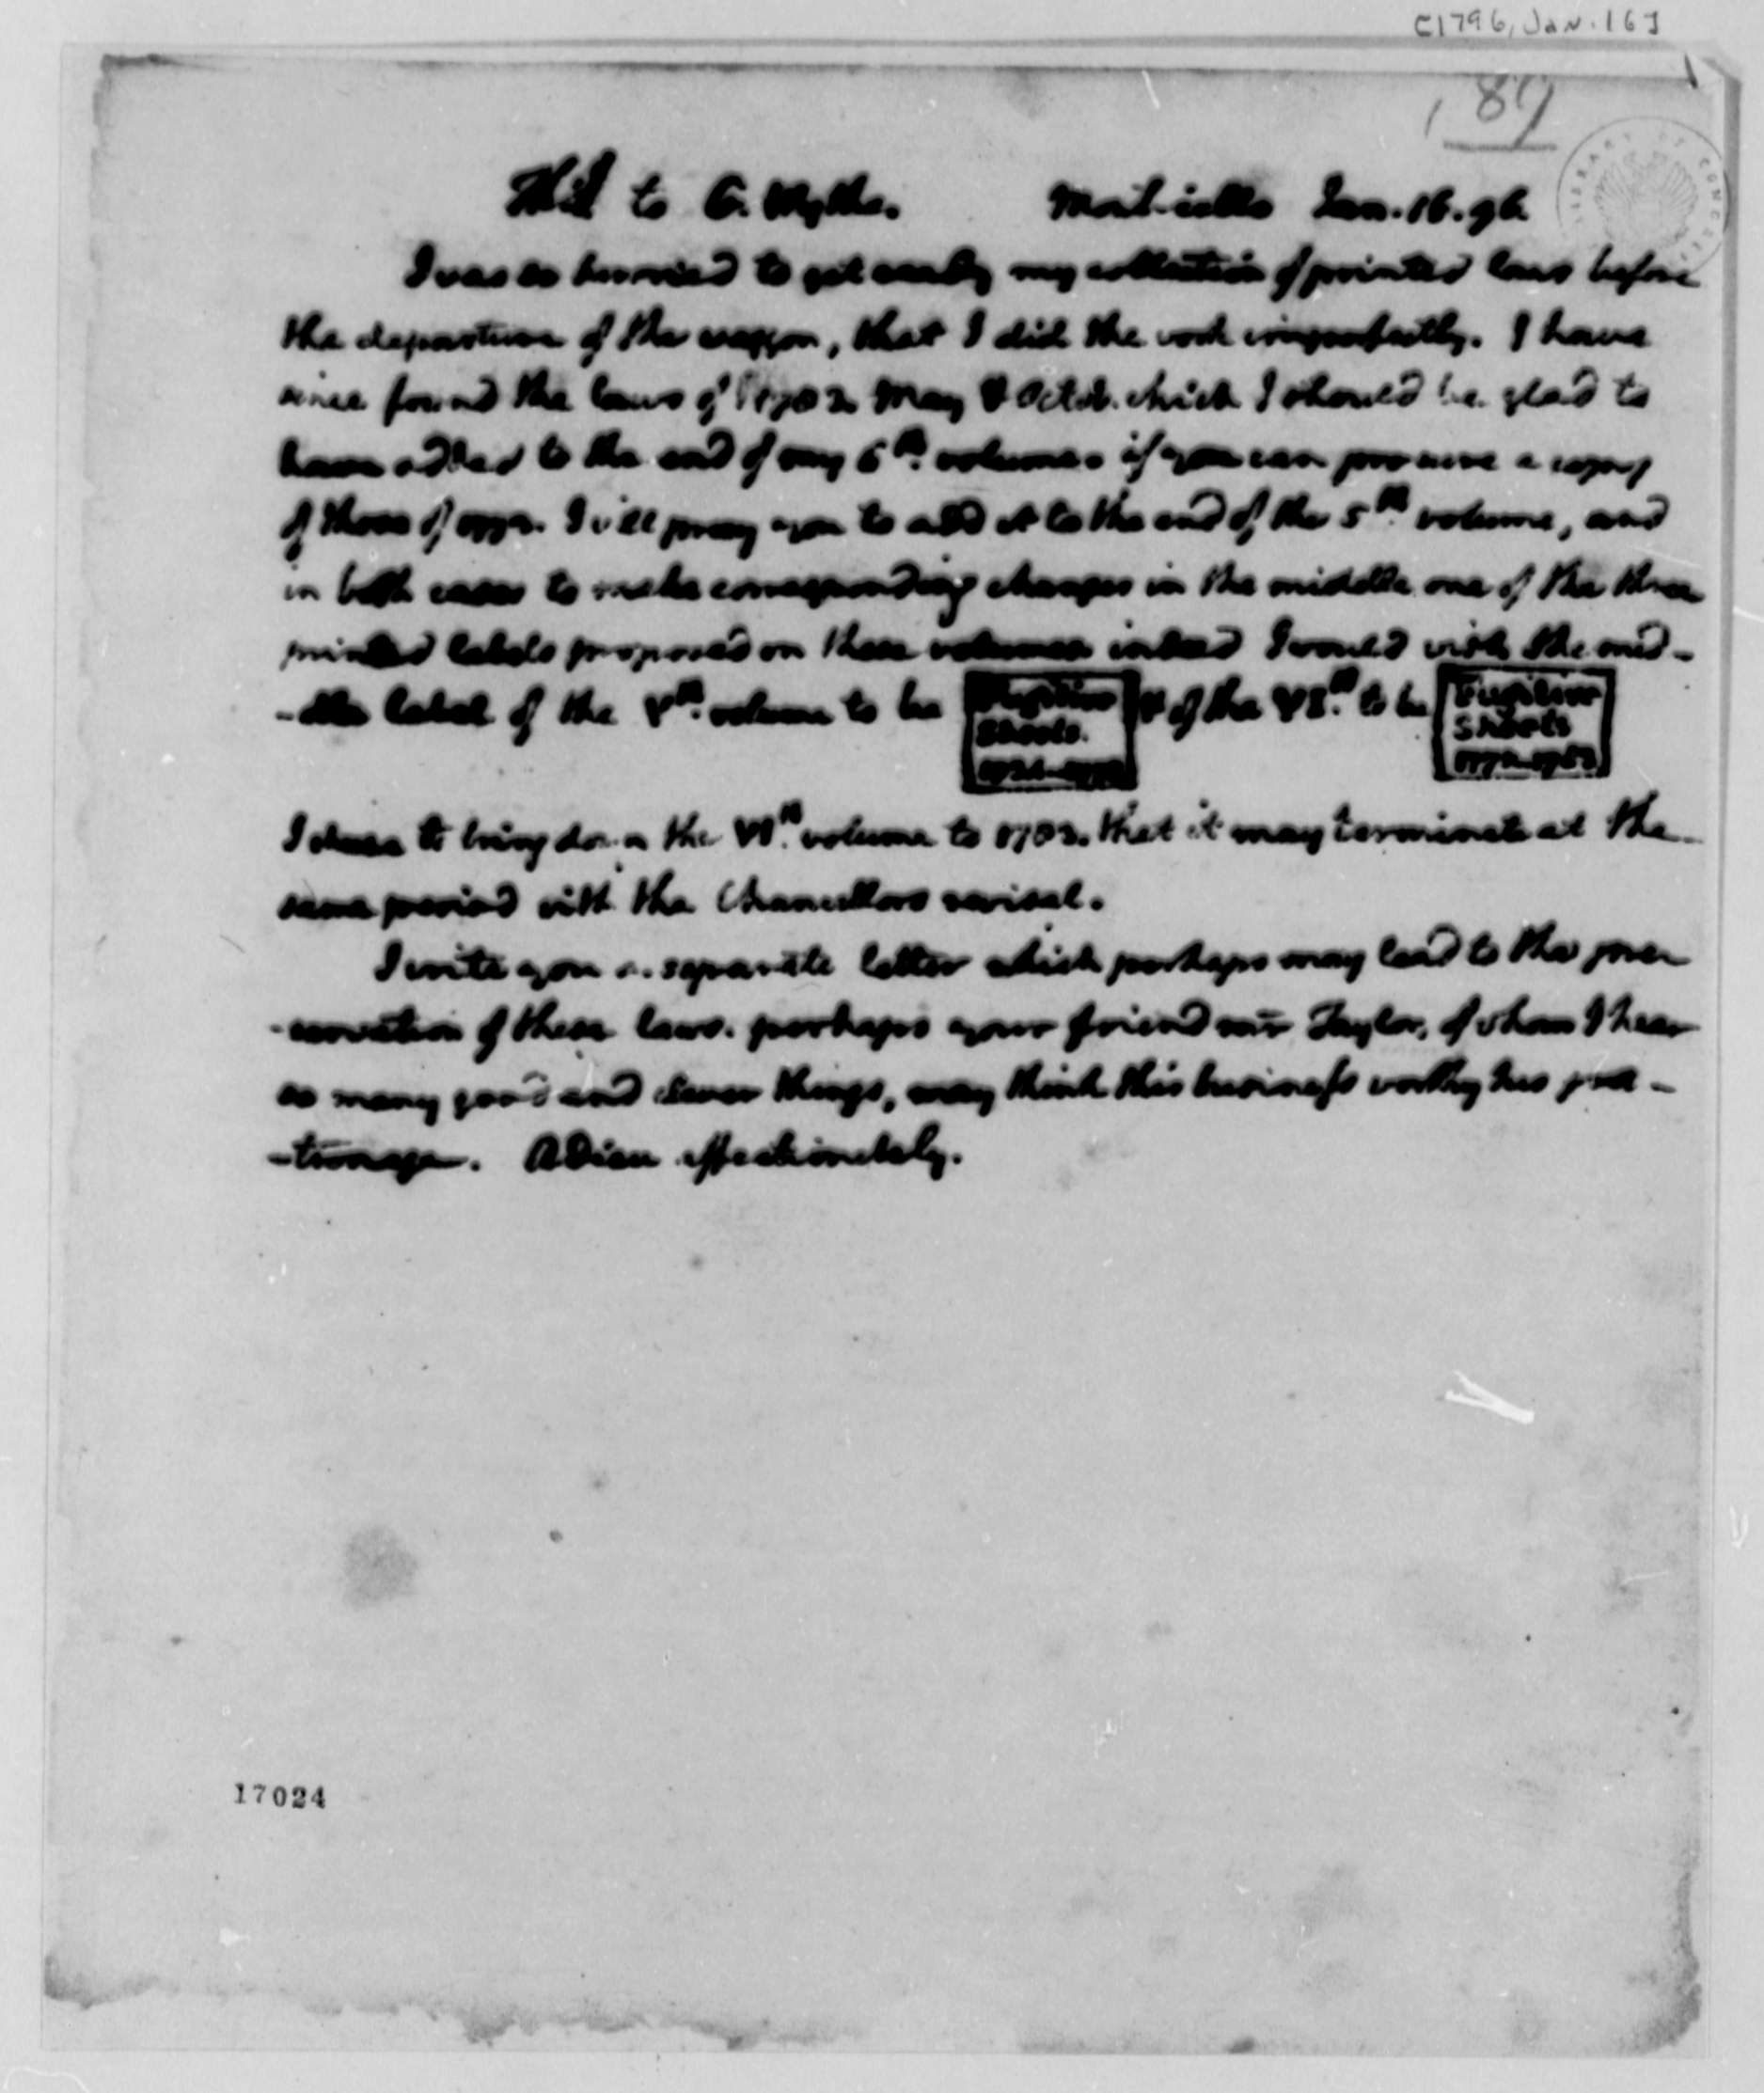 [1796, Jan. 16]
89
Th:J to G. Wythe. Monticello Jan. 16. 96.
I was so hurried to get ready my collection of printed laws before
the departure of the waggon, that I did the work imperfectly. I have
since found the laws of 1782. May & Octob. which I should be glad to
have added to the end of my 6th. volume. if you can procure a copy
of those of I will pray you to add it to the end of the 5th. volume, and
in both cases to make corresponding changes in the middle one of the three
printed labels proposed on these volumes I would wish the mid-
-dle label of the Vth. volume to be Fugitive & of the VIth. to be Fugitive
Sheets. Sheets
I chuse to bring down the VIth. volume to 1783. that it may terminate at the
same period with the Chancellors revisal.
I write you a separate letter which perhaps may lead to the preser
-servation of these laws. perhaps your friend mr Taylor, of whom I hear
so many good and clever things, may think this business worthy his pa-
-tronage. Adieu affectionately.
17024